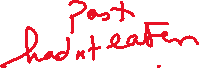 Past
hadnt eaten